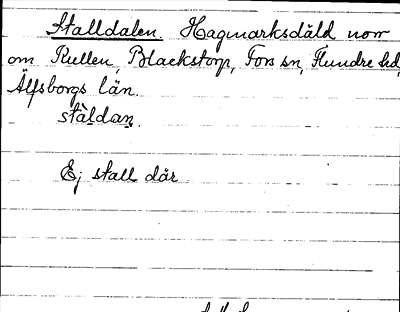 Stalldalen. Hagmarksdäld norr
om Kullen, Blackstorp, Fors sn, Flundre hd,
Älfsborgs län.
stàldan.
Ej stall där